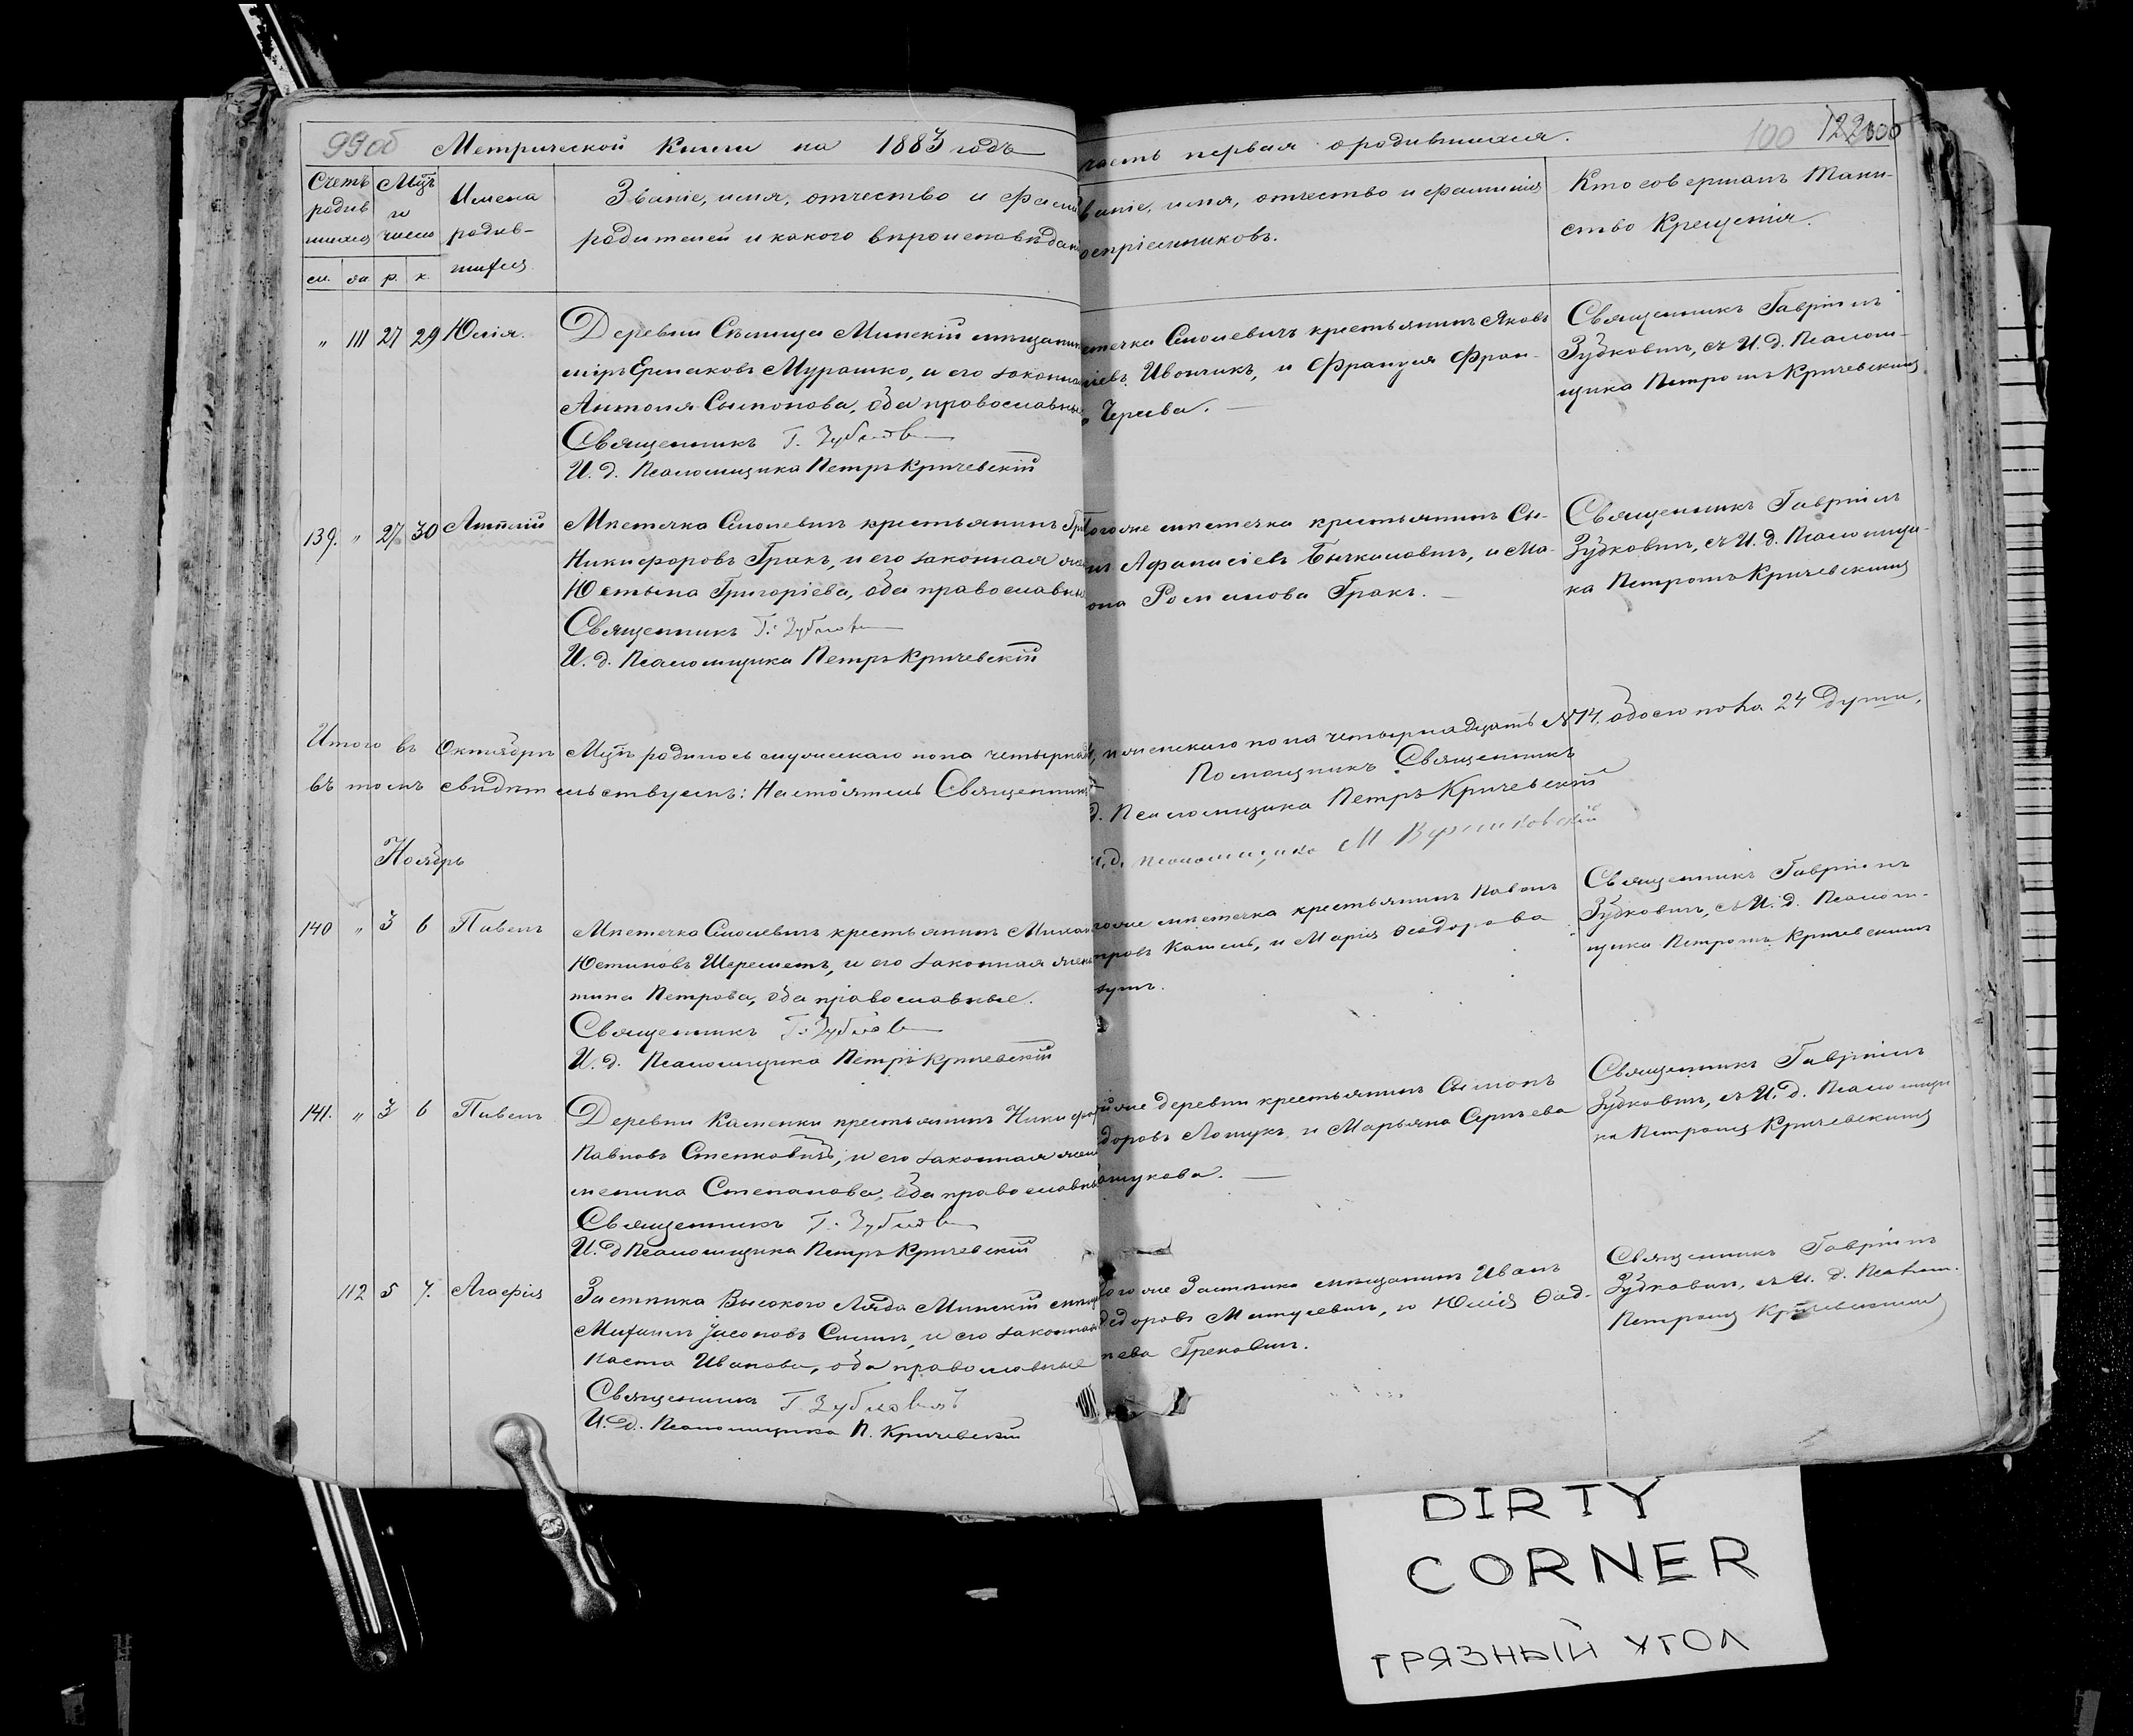 99об Метрической Книги на 1883 годъ
часть первая о родившихся.
100 122
Счетъ родив шихся
Мцъ и число
Имена родив- шихся
м. ж. р. к.
Званіе, имя, отчество и фами
родителей и какого вѣроисповѣдан
Званіе, имя, отчество и фамилія
воспріемниковъ.
Кто совершалъ Таин-
ство Крещенія.
„ 111 27 29 Юлія.
Деревни Слѣпица Минскій мѣщанин
міръ Ермаковъ Мурашко, и его законная
Антонія Сымонова, оба православные
Священникъ Г. Зубкович
И. д. Псаломщика Петръ Кричевскій
мѣстечка Смолевичъ крестьянинъ Яковъ
Ивончикъ, и Француля Фран-
Черива. —
Священникъ Гавріилъ
Зубковичъ, съ И. д. Псалом-
щика Петромъ Кричевскимъ
139. „ 27 30 Антоній
Мѣстечка Смолевичъ крестьянинъ Гри
Никифоровъ Гракъ, и его законная жена
Юстына Григоріева, оба православные
Священникъ Г. Зубкович
И. д. Псаломщика Петръ Кричевскій
того же мѣстечка крестьянинъ Сы-
Афанасіевъ Бычкмовичъ, и Ма-
Романова Гракъ. —
Священникъ Гавріилъ
Зубковичъ, съ И. д. Псаломщи-
ка Петромъ Кричевскимъ
Итого въ Октябрѣ Мцѣ родилось мужескаго пола четырнад
, женскаго пола четырнадцать № 14. обоего пола 24 души,
въ томъ свидѣтельствуемъ: Настоятель Священникъ
Помощникъ Священникъ
д. Псаломщика Петръ Кричевскій
И. д. псаломщика М
Ноябрь
140 „ 3 6 Павелъ
Мѣстечка Смолевичъ крестьянинъ Михаи
Юстиновъ Шереметъ, и его законная жена
тина Петрова, оба православные.
Священникъ Г. Зубкович
И. д. Псаломщика Петръ Кричевскій
того же мѣстечка крестьянинъ Павелъ
Кашель, и Марія Ѳеодорова
Священникъ Гавріилъ
Зубковичъ, съ И. д. Псалом-
щика Петромъ Кричевскимъ
141. „ 3 6 Павелъ
Деревни Каменки крестьянинъ Никифор
Павловъ Стенковичъ, и его законная жена
Степанова, оба православные
Священникъ Г. Зубкович
И. д Псаломщика Петръ Кричевскій
же деревни крестьянинъ Сымонъ
доровъ Лошукъ, и Марьяна Сергѣева
Лошукова. —
Священникъ Гавріилъ
Зубковичъ, съ И. д. Псаломщи
ка Петромъ Кричевскимъ
112 5 7. Агафія
Застѣнка Высокого Ляда Минскій мѣща
Михаилъ Іасоновъ Силичъ, и его законная
Наста Иванова, оба православные
Священникъ Г. Зубковичъ
И. д. Псаломщика П. Кричевскій
того же Застѣнка мѣщанинъ Иванъ
доровъ Матусевичъ, и Юлія Ѳад-
деева Грековичъ.
Священникъ Гавріилъ
Зубковичъ, съ И. д. Псалом.
Петромъ Кричевскимъ
DIRTY
CORNER
ГРЯЗНЫЙ УГОЛ